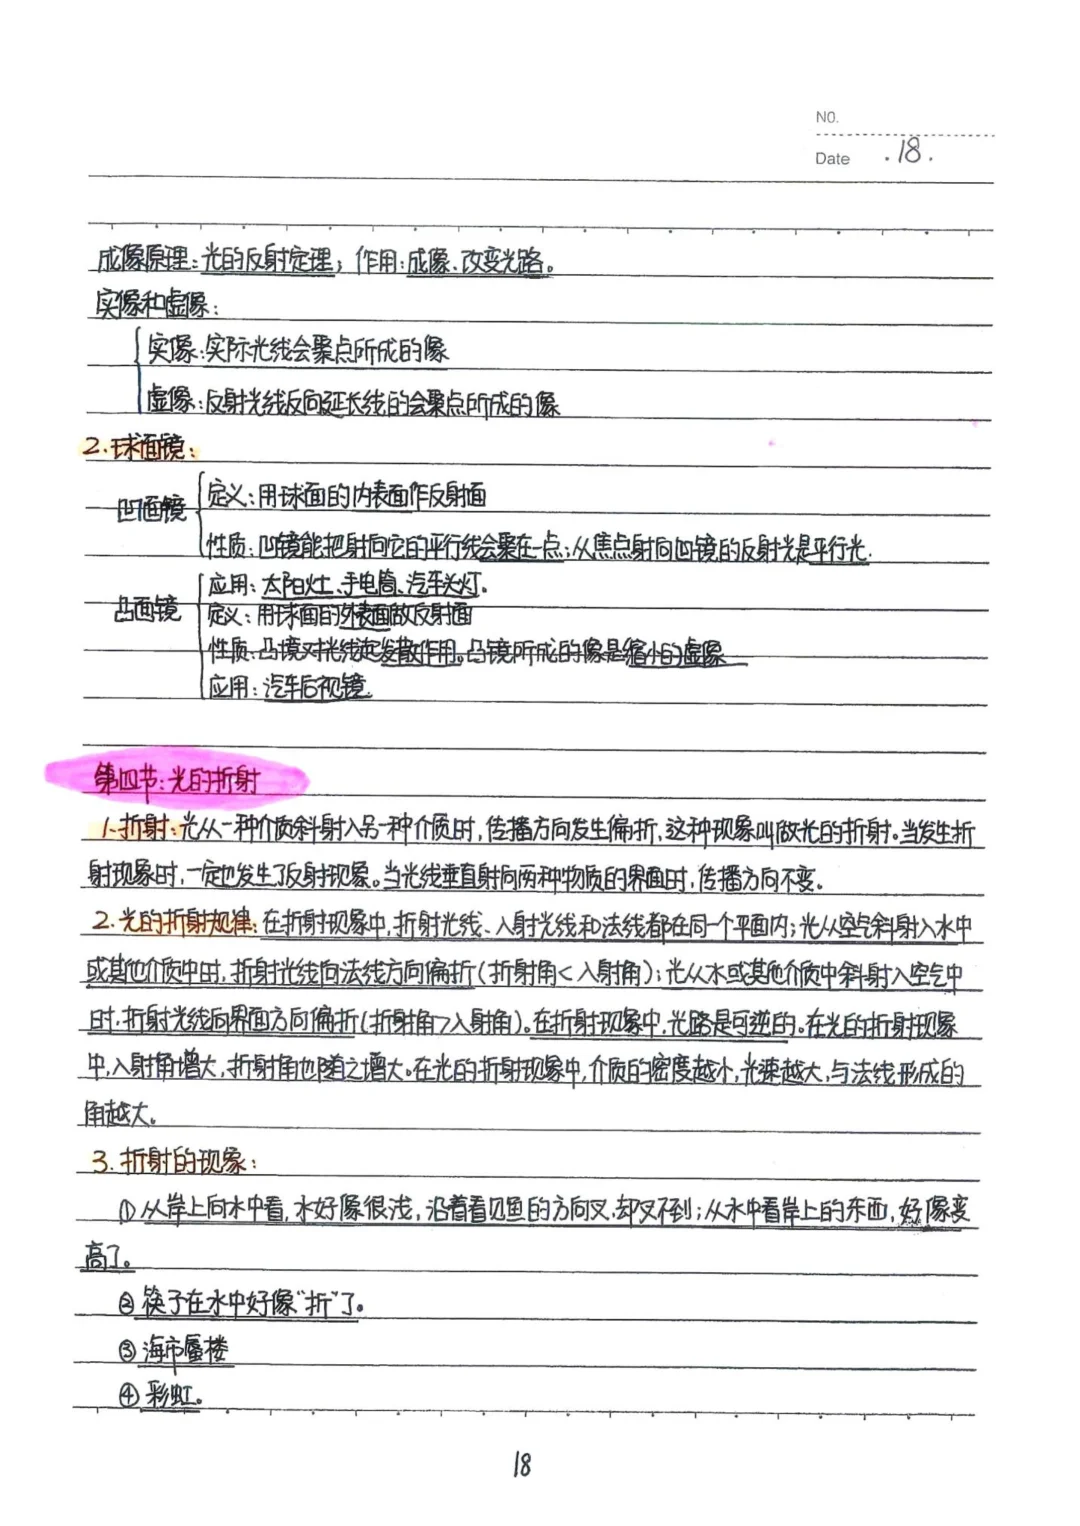 NO.
Date .18.
成像原理:光的反射定理;作用:成像、改变光路。
实像和虚像:
实像:实际光线会聚点所成的像
虚像:反射光线反向延长线的会聚点所成的像
2.球面镜:
凹面镜
定义:用球面的内表面作反射面
性质:凹镜能把射向它的平行线会聚在一点;从焦点射向凹镜的反射光是平行光.
应用:太阳灶、手电筒、汽车头灯.
凸面镜
定义:用球面的外表面做反射面
性质:凸镜对光线起发散作用。凸镜所成的像是缩小的虚像
应用:汽车后视镜.
第四节:光的折射
1.折射:光从一种介质斜射入另一种介质时,传播方向发生偏折,这种现象叫做光的折射.当发生折
射现象时,一定也发生了反射现象。当光线垂直射向两种物质的界面时,传播方向不变.
2.光的折射规律:在折射现象中,折射光线、入射光线和法线都在同一个平面内;光从空气斜射入水中
或其他介质中时,折射光线向法线方向偏折(折射角<入射角);光从水或其他介质中斜射入空气中
时.折射光线向界面方向偏折(折射角>入射角).在折射现象中,光路是可逆的.在光的折射现象
中,入射角增大,折射角也随之增大.在光的折射现象中,介质的密度越小,光速越大,与法线形成的
角越大.
3.折射的现象:
①从岸上向水中看,水好像很浅,沿着看见鱼的方向叉,却叉不到;从水中看岸上的东西,好像变
高了。
②筷子在水中好像“折”了.
③海市蜃楼
④彩虹.
18